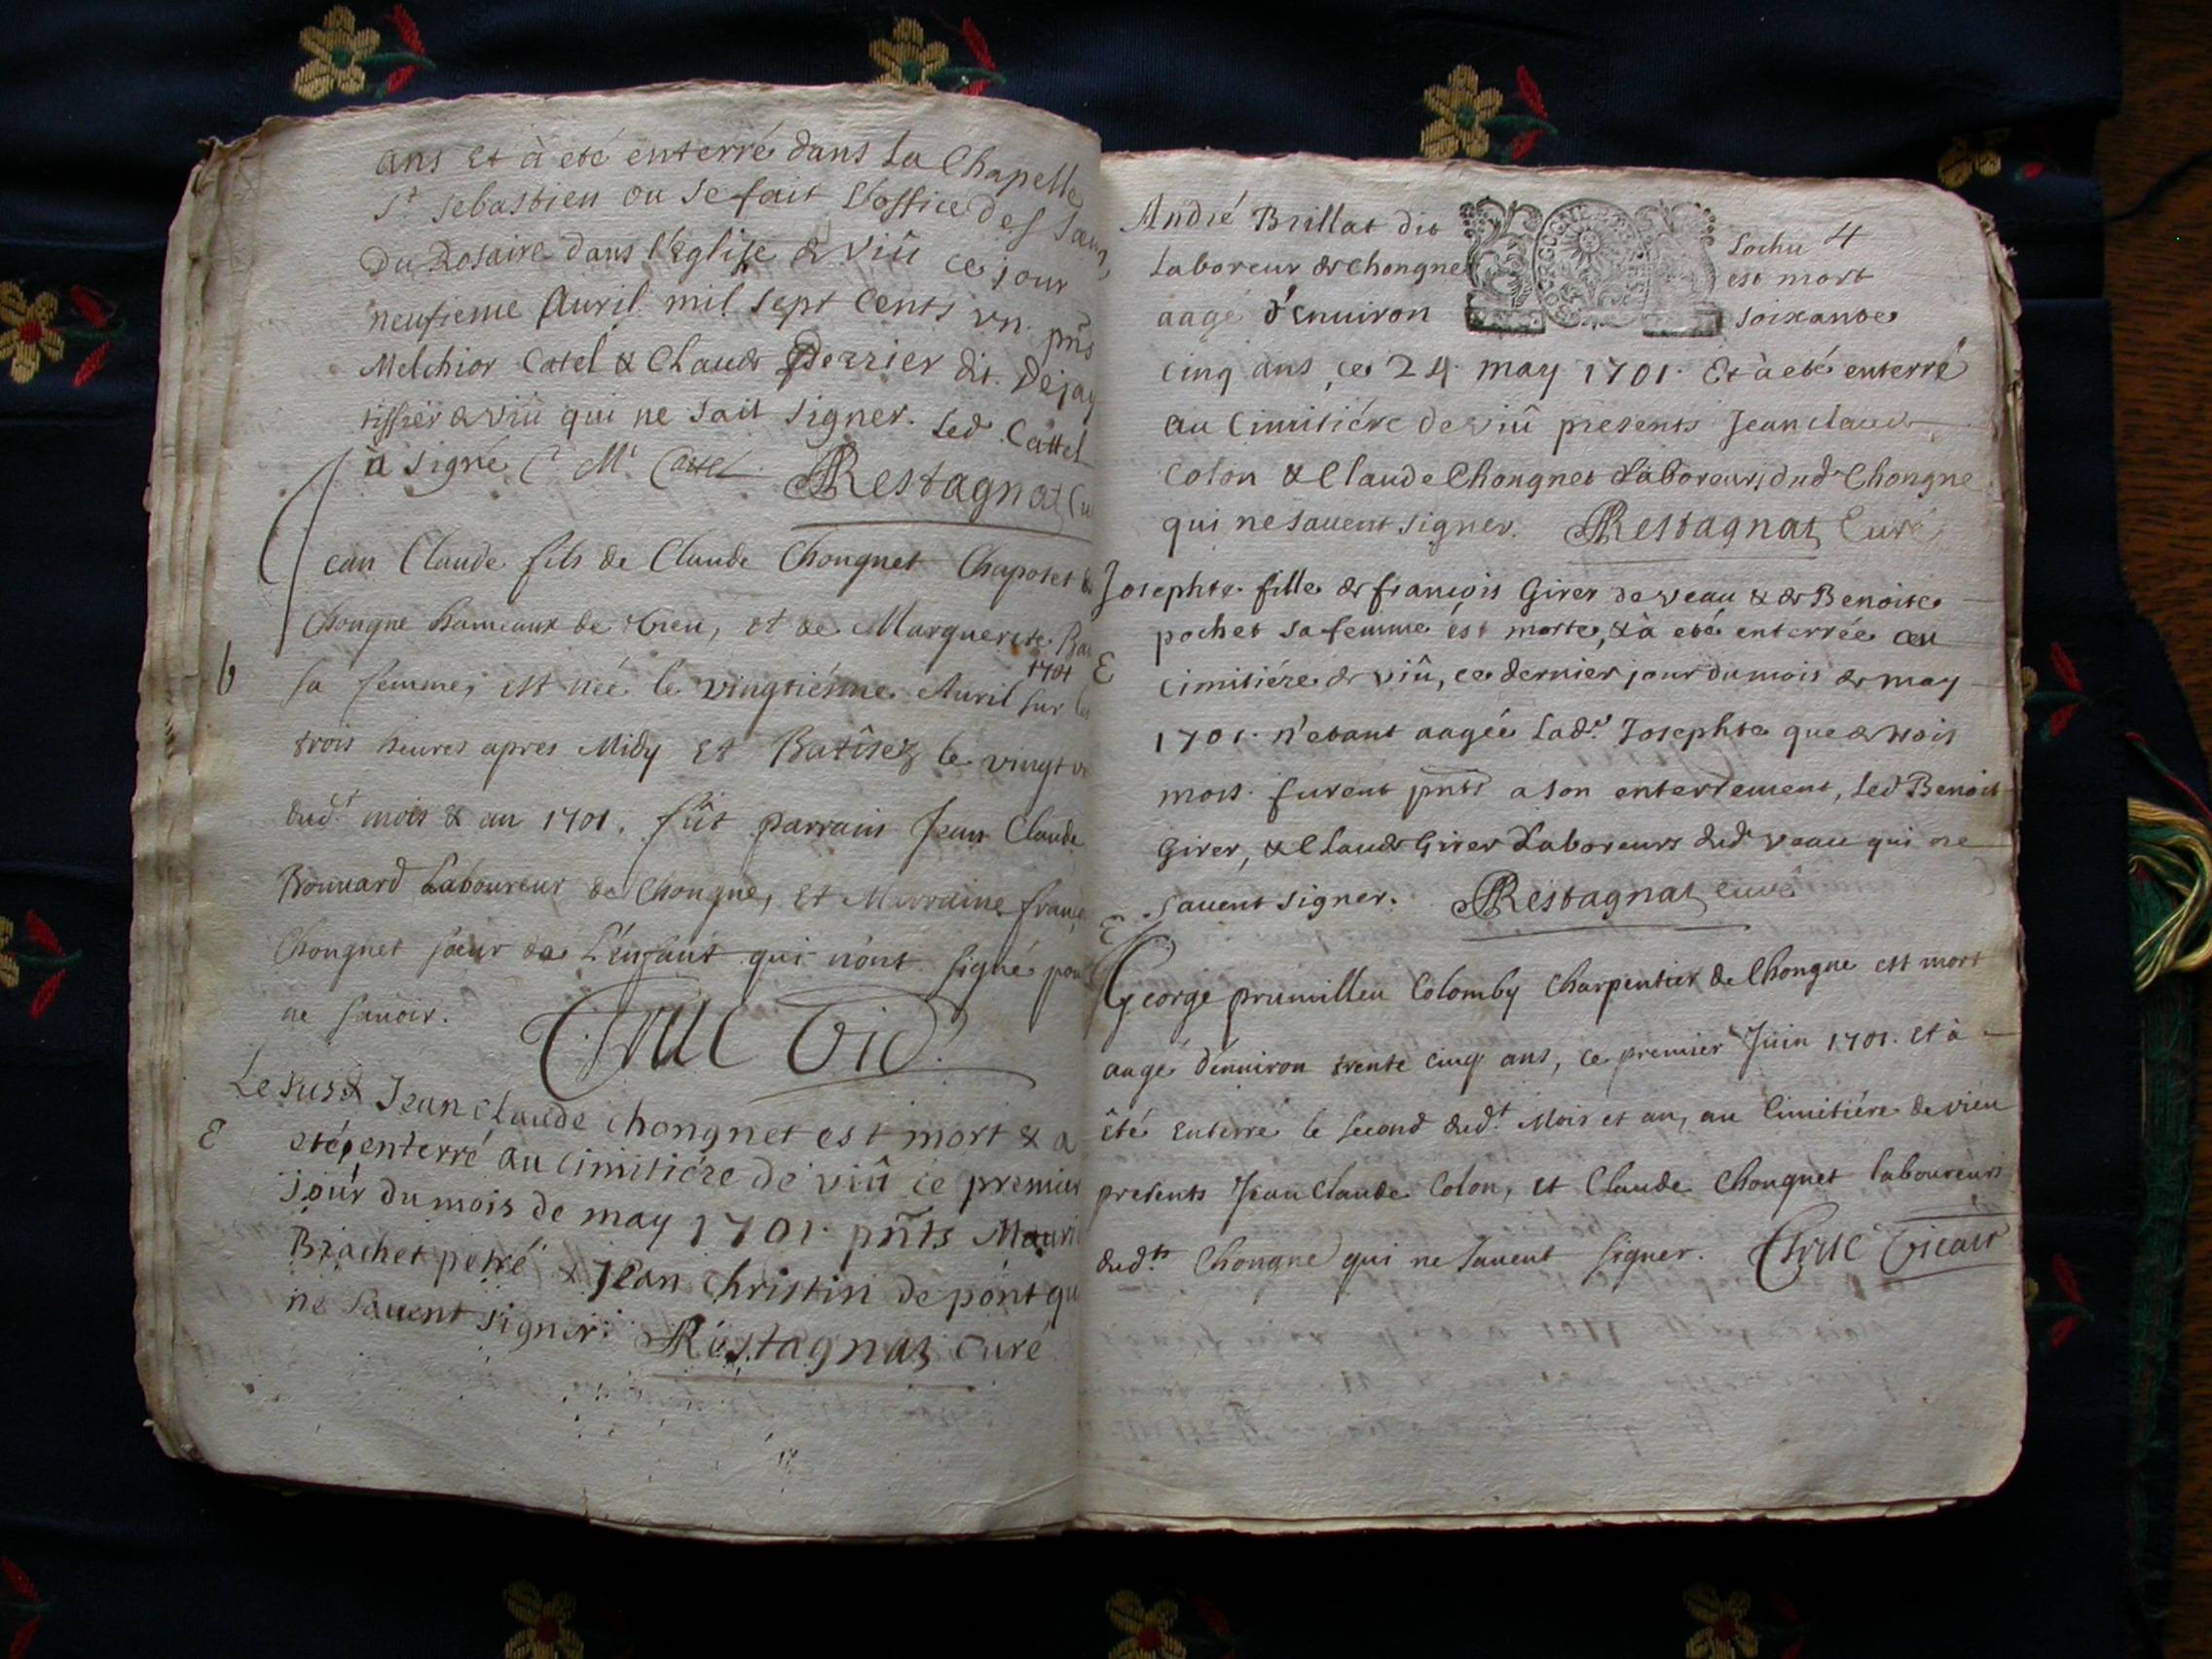 ans et à eté enterré dans la Chapelle
St sebastien ou se fait l'office des
du Rosaire dans l'Eglise de viû ce jour
neufieme Auril mil sept cents vn. pnts
Melchior Catel & Claude Perrier dit Dejay
tissier de viû qui ne sait signer. Led. Cattel
à signé M. Cattel Restagnat Cu
Jean Claude fils de Claude Chongnet Chaposet
Chongne hameaux de vieu, et de Marguerete
1701
b sa femme, est née le vingtiéme Auril sur les
trois heures apres Midy Et Batîsez le vingt
dudt mois & an 1701. fût parrain Jean Claude
Bonuard Laboureur de Chongne, et Marraine
Chongnet soeur de L'enfant qui n'ont signé pour
ne sauoir. Truc Vic.
Le susd Jean claude chongnet est mort & a
E eté enterré au cimitiére de viû ce premier
jour du mois de may 1701. pnts
Brachet petré & Jean Christin de pont qu
ne sauent signer. Restagnat curé
André Brillat dit Sochu 4
Laboreur de Chongne est mort
aagé d'enuiron soixante
cinq ans, ce 24. may 1701. Et à eté enterré
au cimitiére de viû presents Jean claude
Colon & Claude Chongnet Laboreurs dud Chongne
qui ne sauent signer. Restagnat Curé
Josephte fille de françois Girer de veau & de Benoite
pochet sa femme est morte, & à eté enterrée au
E cimitiére de viû, ce dernier jour du mois de may
1701. n'etant aagée lade. Josephte que de trois
mois. furent pnts a son enterrement, led Benoit
Girer, & Claude Girer Laboreurs dud veau qui ne
sauent signer. Restagnat curé
E
George prumilleu Colomby Charpentier de Chongne est mort
aagé d'enuiron trente cinq ans, ce premier Juin 1701. et à
êté enterré le second dudt. Mois et an, au Cimitiére de vieu
presents Jean Claude Colon, et Claude Chongnet laboureurs
dudts Chongne qui ne sauent signer. Truc Vicair